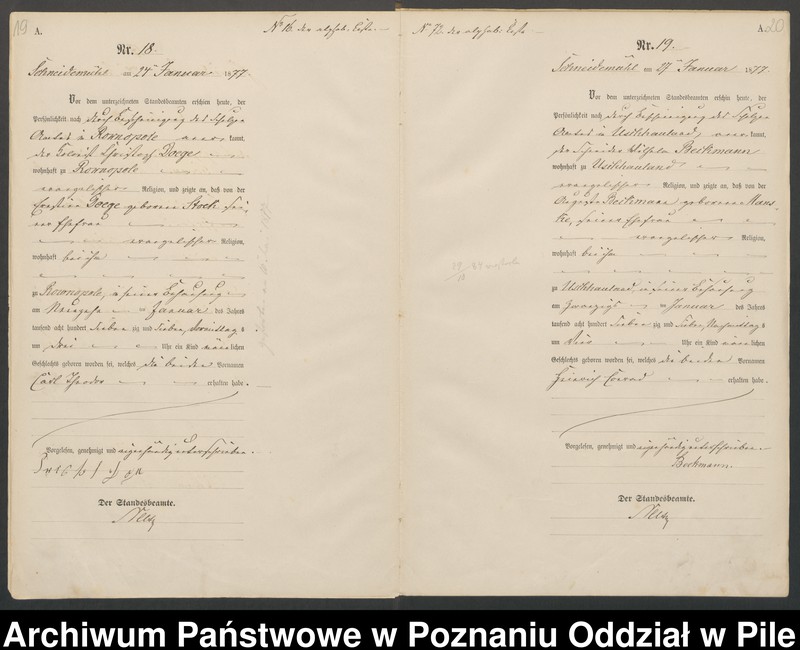 19
A.
Nº 16. der alphab: Liste.
Nr. 18.
Schneidemühl am 24ten Januar 1877.
Vor dem unterzeichneten Standesbeamten erschien heute, der
Persönlichkeit nach durch Bescheinigung des Schulzen
Amtes à Romnopole kannt,
der Kolonist Christoph Doege
wohnhaft zu Romnopole
evangelischer Religion, und zeigte an, daß von der
Doege geborenen Bock sei-
ner Ehefrau
evangelischer Religion,
wohnhaft bei ihm
zu Romnopole, in seiner Behausung
am Januar des Jahres
tausend acht hundert sieben zig und sieben, Vormittag s
um drei Uhr ein Kind männlichen
Geschlechts geboren worden sei, welches die beiden Vornamen
Carl Theodor erhalten habe.
Vorgelesen, genehmigt und eigenhändig unterschrieben.
Der Standesbeamte.
20
A.
Nº 72. der alphab: Liste
Nr. 19.
Schneidemühl am 27ten Januar 1877.
Vor dem unterzeichneten Standesbeamten erschien heute, der
Persönlichkeit nach durch Bescheinigung des Schulzen
Amtes à Uschhauland, kannt,
der Schneider Wilhelm Beckmann
wohnhaft zu Uschhauland
evangelischer Religion, und zeigte an, daß von der
Auguste Beckmann geborenen Mans-
ke, seiner Ehefrau
evangelischer Religion,
wohnhaft bei ihm
zu Uschhauland in seiner Behausung
am zwanzigsten Januar des Jahres
tausend acht hundert sieben zig und sieben, Nachmittag s
um Uhr ein Kind männlichen
Geschlechts geboren worden sei, welches die beiden Vornamen
Heinrich Conrad erhalten habe.
Vorgelesen, genehmigt und eigenhändig unterschrieben.
Beckmann.
Der Standesbeamte.
Archiwum Państwowe w Poznaniu Oddział w Pile